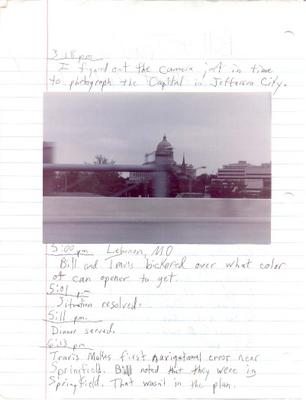 3:18 pm
I figured out the camera just in time
to photograph the Capital in Jefferson City.
5:00 pm Lebanon, MO
Bill and Travis bickered over what color
of can opener to get.
5:01 pm
Situation resolved.
5:11 pm.
Dinner served.
6:13 pm
Travis. Makes first navigational error near
Springfield. Bill noted that they were in
Springfield. That wasn't in the plan.